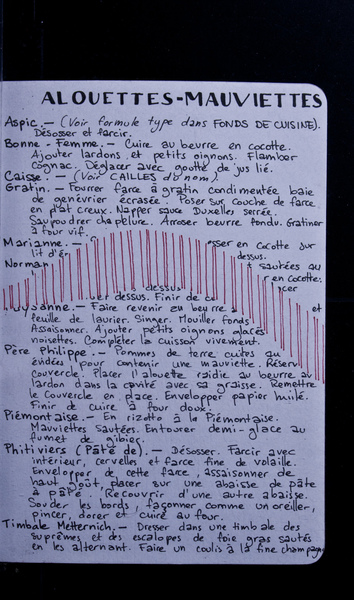 ALOUETTES-MAUVIETTES
Aspic.— (Voir formule type dans FONDS DE CUISINE).
Désosser et farcir.
Bonne-Femme.— Cuire au beurre en cocotte.
Ajouter lardons et petits oignons. Flamber
Cognac. Déglacer avec goutte de jus lié.
Caisse.— (Voir CAILLES d° nom).
Gratin.— Fourrer farce à gratin condimentée baie
de genévrier écrasée. Poser sur couche de farce
en plat creux. Napper sauce Duxelles serrée.
Saupoudrer chapelure. Arroser beurre fondu. Gratiner
à four vif.
Marianne.— sser en cocotte sur
lit d' dessus.
Norman sautées au
en cocotte.
dessus cer
uer dessus. Finir de
ysanne.— Faire revenir en beurre et
feuille de laurier. Singer. Mouiller fonds
Assaisonner. Ajouter petits oignons glacés
noisettes. Compléter la cuisson vivement.
Père Philippe.— Pommes de terre cuites au
évidées pour contenir une mauviette. Réserv
couvercle. Placer l'alouette raidie au beurre av
lardon dans la cavité avec sa graisse. Remettre
le couvercle en place. Envelopper papier huilé.
Finir de cuire à four doux.
Piémontaise.— En rizotto à la Piémontaise.
Mauviettes sautées. Entourer demi-glace au
fumet de gibier.
Phitiviers (Pâté de).— Désosser. Farcir avec
intérieur, cervelles et farce fine de volaille.
Envelopper de cette farce, assaisonner de
haut goût, placer sur une abaisse de pâte
à pâté. Recouvrir d'une autre abaisse.
Souder les bords, façonner comme un oreiller,
pincer, dorer et cuire au four.
Timbale Metternich.— Dresser dans une timbale des
suprêmes et des escalopes de foie gras sautés
en les alternant. Faire un coulis à la fine champagn